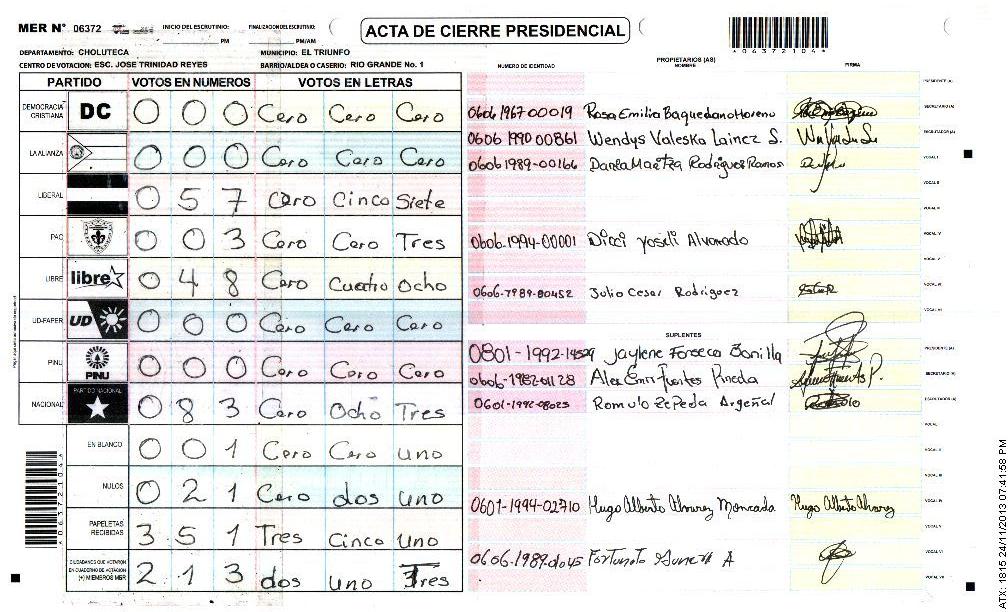 MER Nº 06372 INICIO DEL ESCRUTINIO: PM FINALIZACION DEL ESCRITINIO: PM/AM
ACTA DE CIERRE PRESIDENCIAL
*063721044*
DEPARTAMENTO: CHOLUTECA MUNICIPIO: EL TRIUNFO
CENTRO DE VOTACION: ESC. JOSE TRINIDAD REYES BARRIO/ALDEA O CASERIO: RIO GRANDE No. 1
PARTIDO VOTOS EN NUMEROS VOTOS EN LETRAS
DEMOCRACIA CRISTIANA DC 0 0 0 Cero Cero Cero
LA ALIANZA 0 0 0 Cero Cero Cero
LIBERAL 0 5 7 Cero Cinco Siete
PAC 0 0 3 Cero Cero Tres
LIBRE libre 0 4 8 Cero Cuatro Ocho
UD-FAPER UD 0 0 0 Cero Cero Cero
PINU PINU 0 0 0 Cero Cero Cero
NACIONAL PARTIDO NACIONAL 0 8 3 Cero Ocho Tres
EN BLANCO 0 0 1 Cero Cero uno
NULOS 0 2 1 Cero dos uno
PAPELETAS RECIBIDAS 3 5 1 Tres Cinco Uno
CIUDADANOS QUE VOTARON EN CUADERNO DE VOTACION (+) MIEMBROS MER 2 1 3 dos uno Tres
NUMERO DE IDENTIDAD PROPIETARIOS (AS) NOMBRE FIRMA
PRESIDENTE (A)
0606 1967 00019 Rosa Emilia Baquedano Moreno SECRETARIO (A)
0606 1990 00861 Wendys Valeska Lainez S. ESCRUTADOR (A)
0606 1989-00166 Rodriguez Ramos VOCAL I
VOCAL II
VOCAL III
0606-1994-00001 Yoseli Alvarado VOCAL IV
VOCAL V
Julio Cesar Rodriguez VOCAL VI
VOCAL VII
SUPLENTES
0801-1992-14529 Jaylene Fonseca Bonilla PRESIDENTE (A)
Fuentes Pineda SECRETARIO (A)
0601-1992-08025 Romulo Zepeda Argeñal ESCRUTADOR (A)
VOCAL I
VOCAL II
VOCAL III
0601-1994-02710 Hugo Alberto Alvarez Moncada Hugo Alberto Alvarez VOCAL IV
VOCAL V
Fortunato A VOCAL VI
VOCAL VII
*063721044*
ATX: 1815 24/11/2013 07:41:58 PM